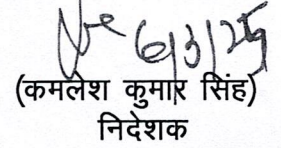 6/3/25
(कमलेश कुमार सिंह)
निदेशक